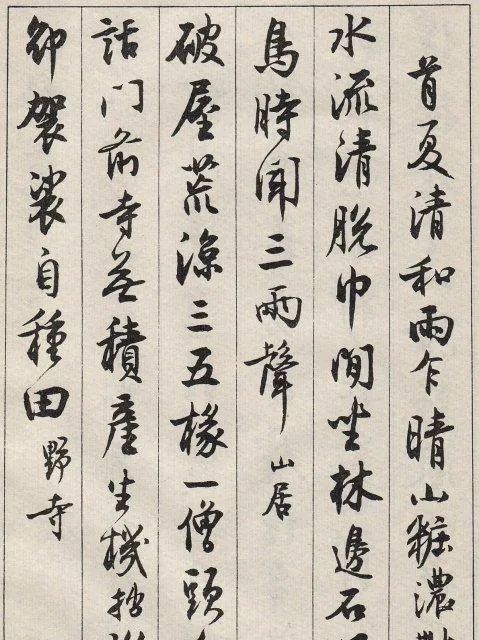 首夏清和雨乍晴山妝濃
水流清脫巾閒坐林邊石
鳥時聞三兩聲 山居
破屋荒涼三五椽一僧頭
話門前寺無積產生機拙
卸袈裟自種田 野寺